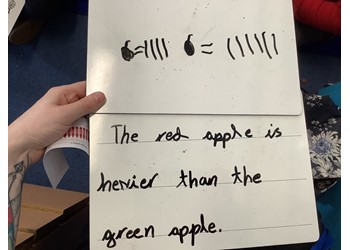 = |||| = ||||||
The red apple is
hevier than the
green apple.